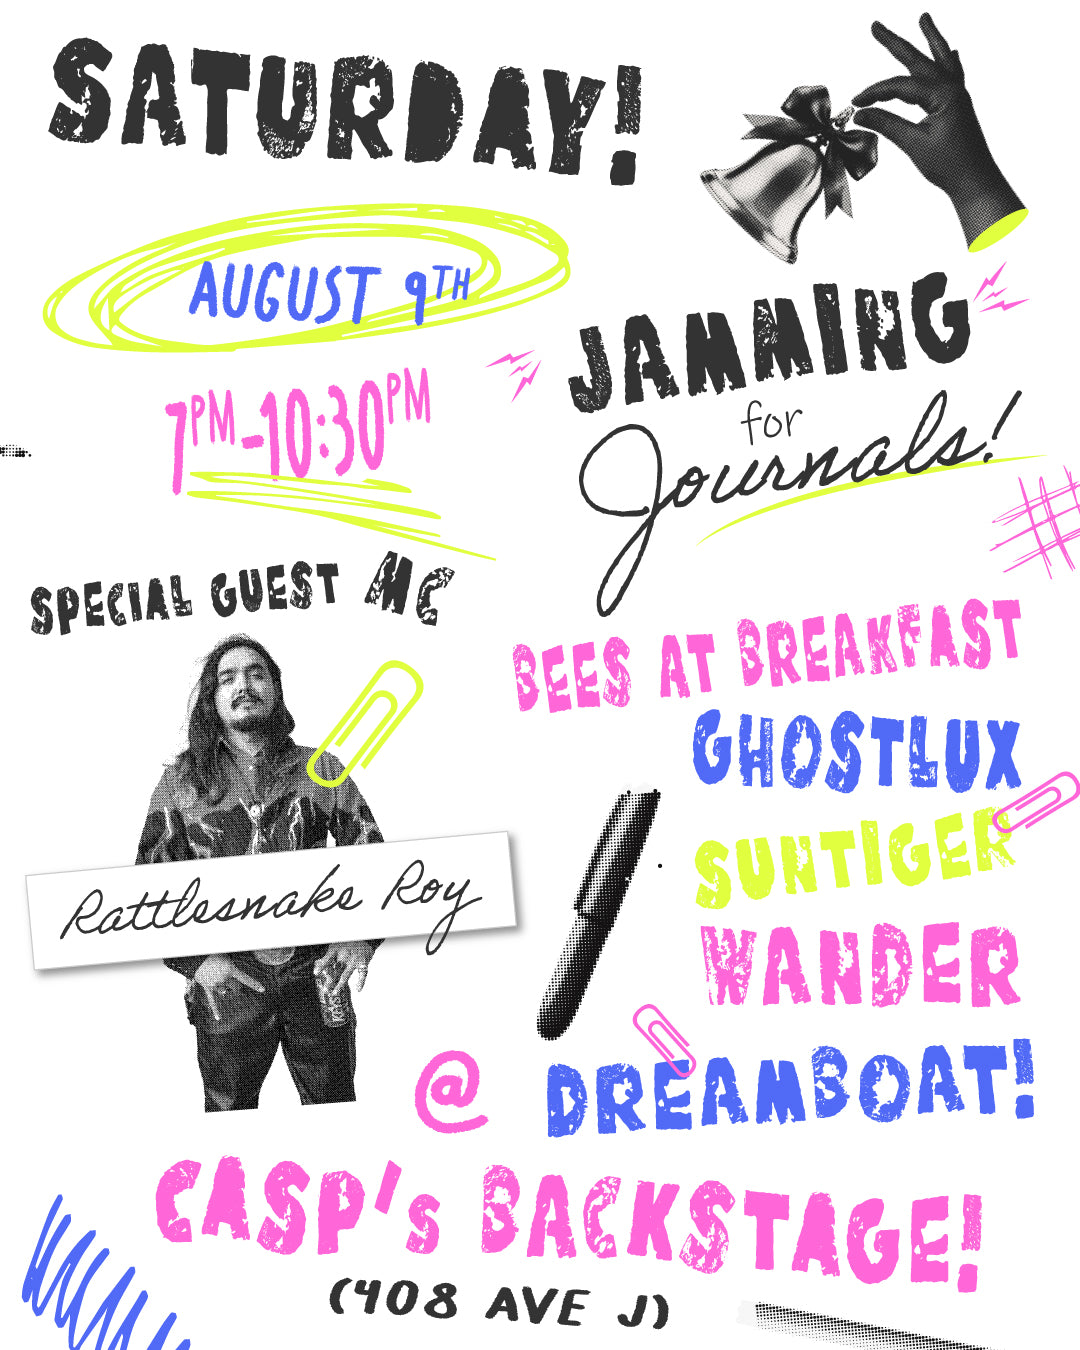 SATURDAY!
AUGUST 9TH
7PM-10:30PM
JAMMING
for
Journals!
SPECIAL GUEST MC
Rattlesnake Roy
BEES AT BREAKFAST
GHOSTLUX
SUNTIGER
WANDER
DREAMBOAT!
@
CASP's BACKSTAGE!
(408 AVE J)